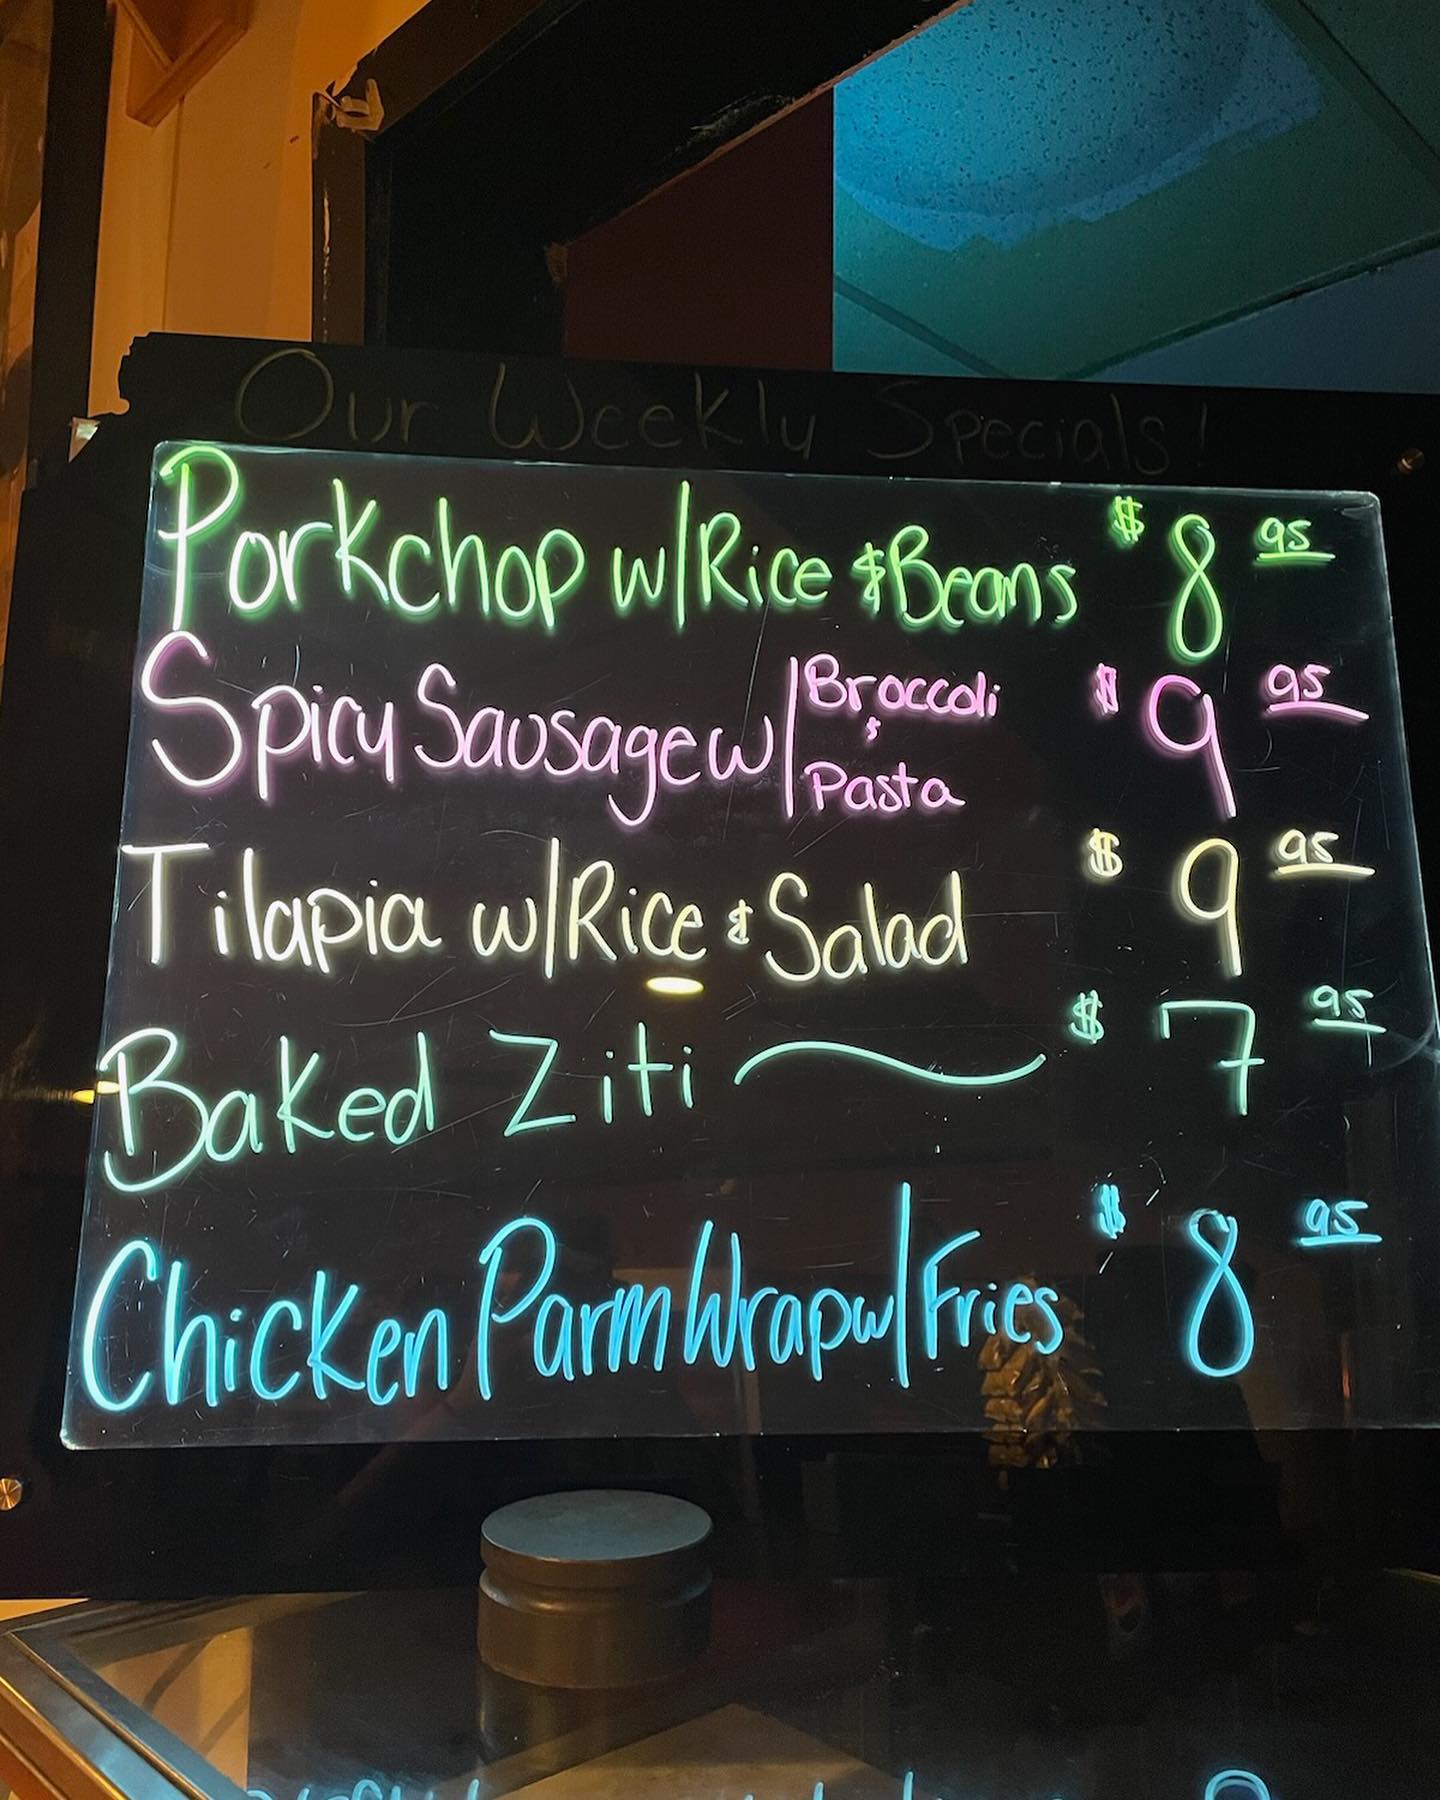 Our Weekly Specials!
Porkchop w/Rice & Beans $8 95
Spicy Sausage w/ Broccoli & Pasta $9 95
Tilapia w/Rice & Salad $9 95
Baked Ziti $7 95
Chicken Parm Wrap w/Fries $8 95